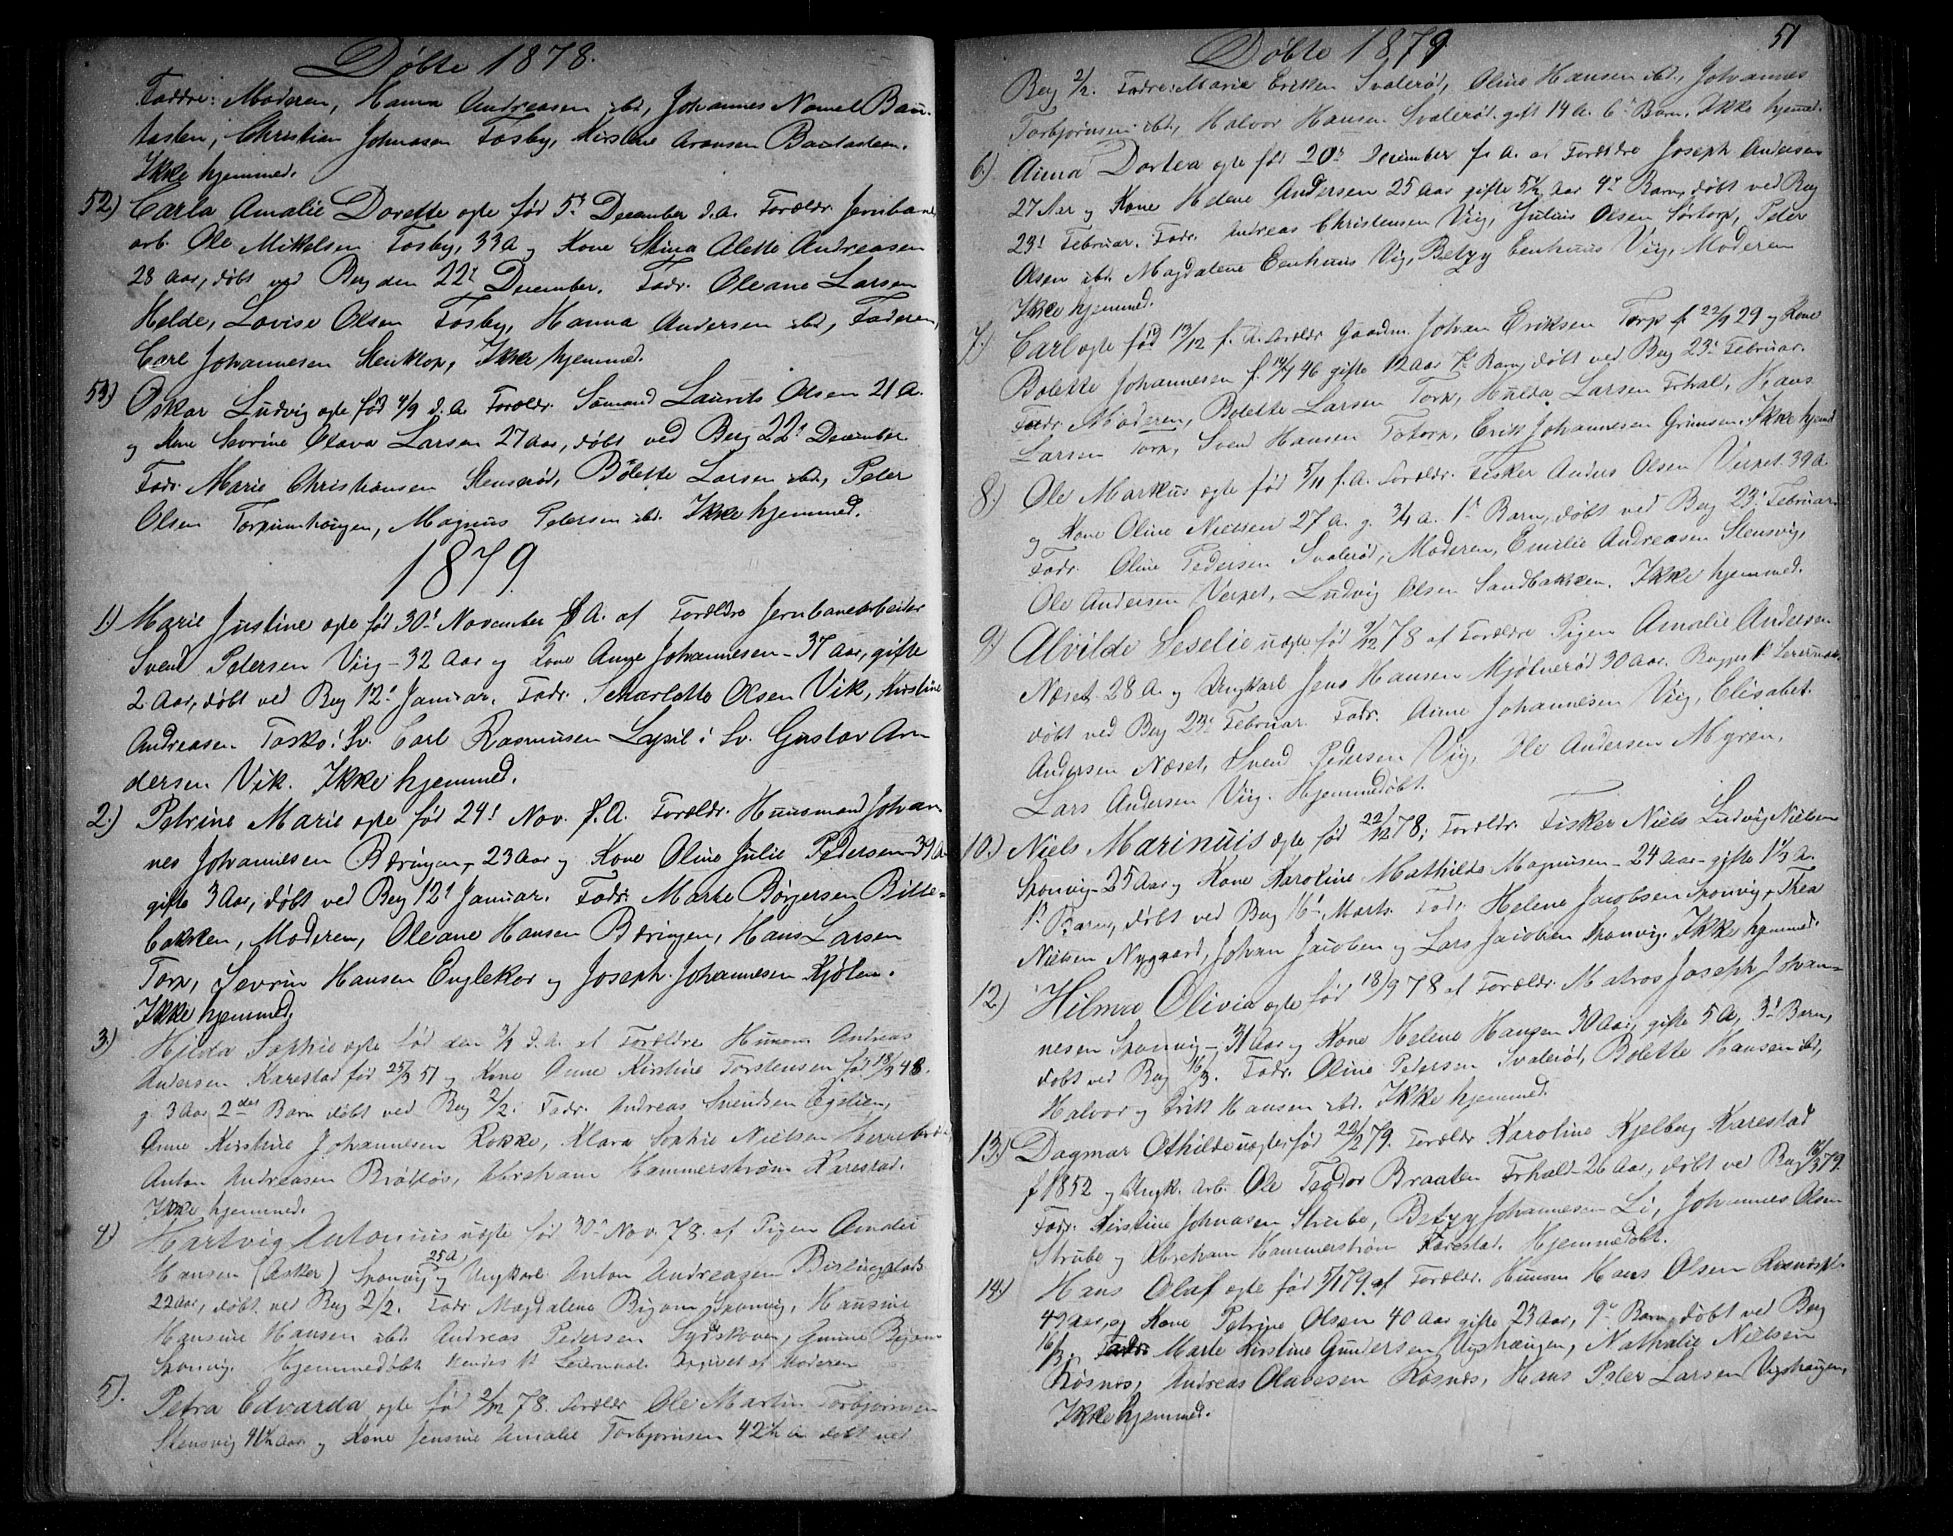 Døbte 1878.
Faddre: Moderen, Hanna Andreasen ibd, Johannes Bau-
tasten, Christian Johnasen Fosby, Kirstine Aronsen Bautasten.
Ikke hjemmed.
52) Carla Amalie Dorette egte før 5t December d.A. Foreldr. Jernbane
arb. Ole Mikelsen Fosby, 33 A og Kone Stina Alette Andreasen
28 Aar, døbt ved Berg den 22t December. Fadr. Oleane Larsen
Helde, Lovise Olsen Fosby, Hanna Andersen ibd, Faderen,
Carl Johannesen Ikke hjemmed.
53) Oskar Ludvig egte født 4/9 d.A. Foreldr. Sømand Laurits Olsen 21 A.
og Kone Severine Olava Larsen 27 Aar, døbt ved Berg 22t December
Fadr. Marie Christiansen Stensrød, Bolette Larsen ibd, Peter
Olsen Magnus Petersen ibd. Ikke hjemmed.
1879.
1.) Marie Justine egte før 30t November f.A. af Foreldre Jernbanearbeider
Svend Petersen Viig - 32 Aar og Kone Ane Johannesen - 37 Aar, gifte
2 Aar, døbt ved Berg 12t Januar. Fadr. Scharlotte Olsen Vik, Kirstine
Andreasen i Sv. Carl Rasmusen Lysil i Sv. Gustav An-
dersen Vik. Ikke hjemmed.
2.) Petrine Marie egte før 24t Nov. f.A. Foreldr. Huusmand Johan-
nes Johannesen Børingen, 23 Aar og Kone Oline Julie Pedersen 31 A
gifte 3 Aar, døbt ved Berg 12t Januar. Fadr. Marte Børgersen Bitte-
bakken, Moderen, Oleane Hansen Børingen, Hans Larsen
Torp, Sevrin Hansen Englekor og Joseph Johannesen Kjølen.
Ikke hjemmed.
3.) Hilda Sophie egte før den 3/1 d.A. af Foreldre Husm. Andreas
Andersen Karestad før 25/3 51 og Kone Anne Kirstine Torstensen før 18/9 48.
g. 3 Aar, 2det Barn døbt ved Berg 2/2. Fadr. Andreas Svendsen
Anne Kirstine Johannesen Rokke, Klara Sophie Nielsen
Anton Andreasen Abraham Hammerstrøm Karestad.
Ikke hjemmed.
4) Hartvig Antonius uegte før 30t Nov. 78. af Pigen Amalie
Hansen (Asker) Sponvig 25 A, og Ungkarl Anton Andreasen
22 Aar, døbt ved Berg 2/2. Fadr Magdalene Sponvig, Hansine
Hansine Hansen ibd Andreas Pedersen Gunine
Sponvig. Hjemmedøbt. Hendes 1t Leiermaal Opgivet af Moderen
5). Petra Edvarda egte før 2/12 78. Foreldr Ole Martin Torbjørnsen
Stensvig 41½ Aar og Kone Jensine Amalie Torbjørnsen 42½ A døbt ved
Døbte 1879
51
Berg 2/2. Fadre: Marie Eriksen Svalerød, Oline Hansen ibd, Johannes
Torbjørnsen ibd, Halvor Hansen Svalerød. gift 14 A. 6t Barn. Ikke hjemmed.
6) Anna Dortea egte før 20t December f.A. af Foreldre Joseph Andersen
27 Aar og Kone Helene Andersen 25 Aar gifte 5½ Aar 4t Barn, døbt ved Berg
23t Februar. Fadr. Andreas Christensen Viig, Julius Olsen Sørtorp, Peter
Olsen ibd. Magdalene Eenhuus Vig, Betzy Eenhuus Viig, Moderen
Ikke hjemmed.
7.) Carl egte før 13/12 f.A. Foreldr Gaardm. Johan Eriksen Torp f. 22/9 29 og Kone
Bolette Johannesen f. 14/4 46 gifte 12 Aar 7t Barn, døbt ved Berg 23t Februar.
Fadr. Moderen, Bolette Larsen Torp, Hulda Larsen Frhald, Hans
Larsen Torp, Svend Hansen Erik Johannesen Grimsen. Ikke hjemd
8.) Ole Markus egte før 5/11 f.A. Foreldr. Fisker Anders Olsen Verpet 39 A.
og Kone Oline Nielsen 27 A. g. 3/4 A. 1t Barn, døbt ved Berg 23t Februar.
Fadr. Oline Pedersen Svalerød, Moderen, Emilie Andreasen Stensvig,
Ole Andersen Verpet, Ludvig Olsen Sandbakken. Ikke hjemmed.
9) Alvilde Seselie uegte før 9/12 78 af Foreldre Pigen Amalie Andersen
Næset 28 A. og Ungkarl Jens Hansen Mjølnerød 30 Aar. Begges 1t Leiermaal.
døbt ved Berg 23t Februar Fadr. Anne Johannesen Viig, Elisabet
Andersen Næset, Svend Pedersen Viig, Ole Andersen Myren,
Lars Andersen Viig. Hjemmedøbt.
10.) Niels Marinuis egte før 22/12 78; Foreldr. Fisker Niels Ludvig Nielsen
Sponvig 25 Aar og Kone Karoline Mathilde Magnusen - 24 Aar - gifte 1 1/3 A.
1t Barn, døbt ved Berg 16t Marts. Fadr. Helene Jacobsen Sponvig, Thea
Nielsen Nygaard, Johan Jacobsen og Lars Jacobsen Sponvig. Ikke hjemmed.
12.) Hilma Olivia egte før 18/9 78 af Foreldr. Matros Joseph Johan-
nesen Sponvig, 31 Aar og Kone Helene Hansen 30 Aar, gifte 5 A, 3t Barn,
døbt ved Berg 16/3. Fadr. Oline Pedersen Svalerød, Bolette Hansen ibd,
Halvor og Erik Hansen ibd. Ikke hjemmed.
13.) Dagmar Othilde uegte før 22/2 79. Foreldr Karoline Kjelberg Karestad
f 1852 og Ungk. Arb. Ole Teodor Braaten Frhald - 26 Aar, døbt ved Berg 16/3 79.
Fadr. Kirstine Johnasen Strube, Betzy Johannesen Li, Johannes Olsen
Strube og Abraham Hammerstrøm Karestad. Hjemmedøbt.
14.) Hans Oluf egte før 5/1 79. af Foreldr. Husm. Hans Olsen
49 Aar, og Kone Petrine Olsen 40 Aar gifte 23 Aar, 9t Barn, døbt ved Berg
16/3. Fadr. Marte Kirstine Gundersen Nathalie Nielsen
Røsnes, Andreas Olavesen Røsnes, Hans Peter Larsen
Ikke hjemmed.